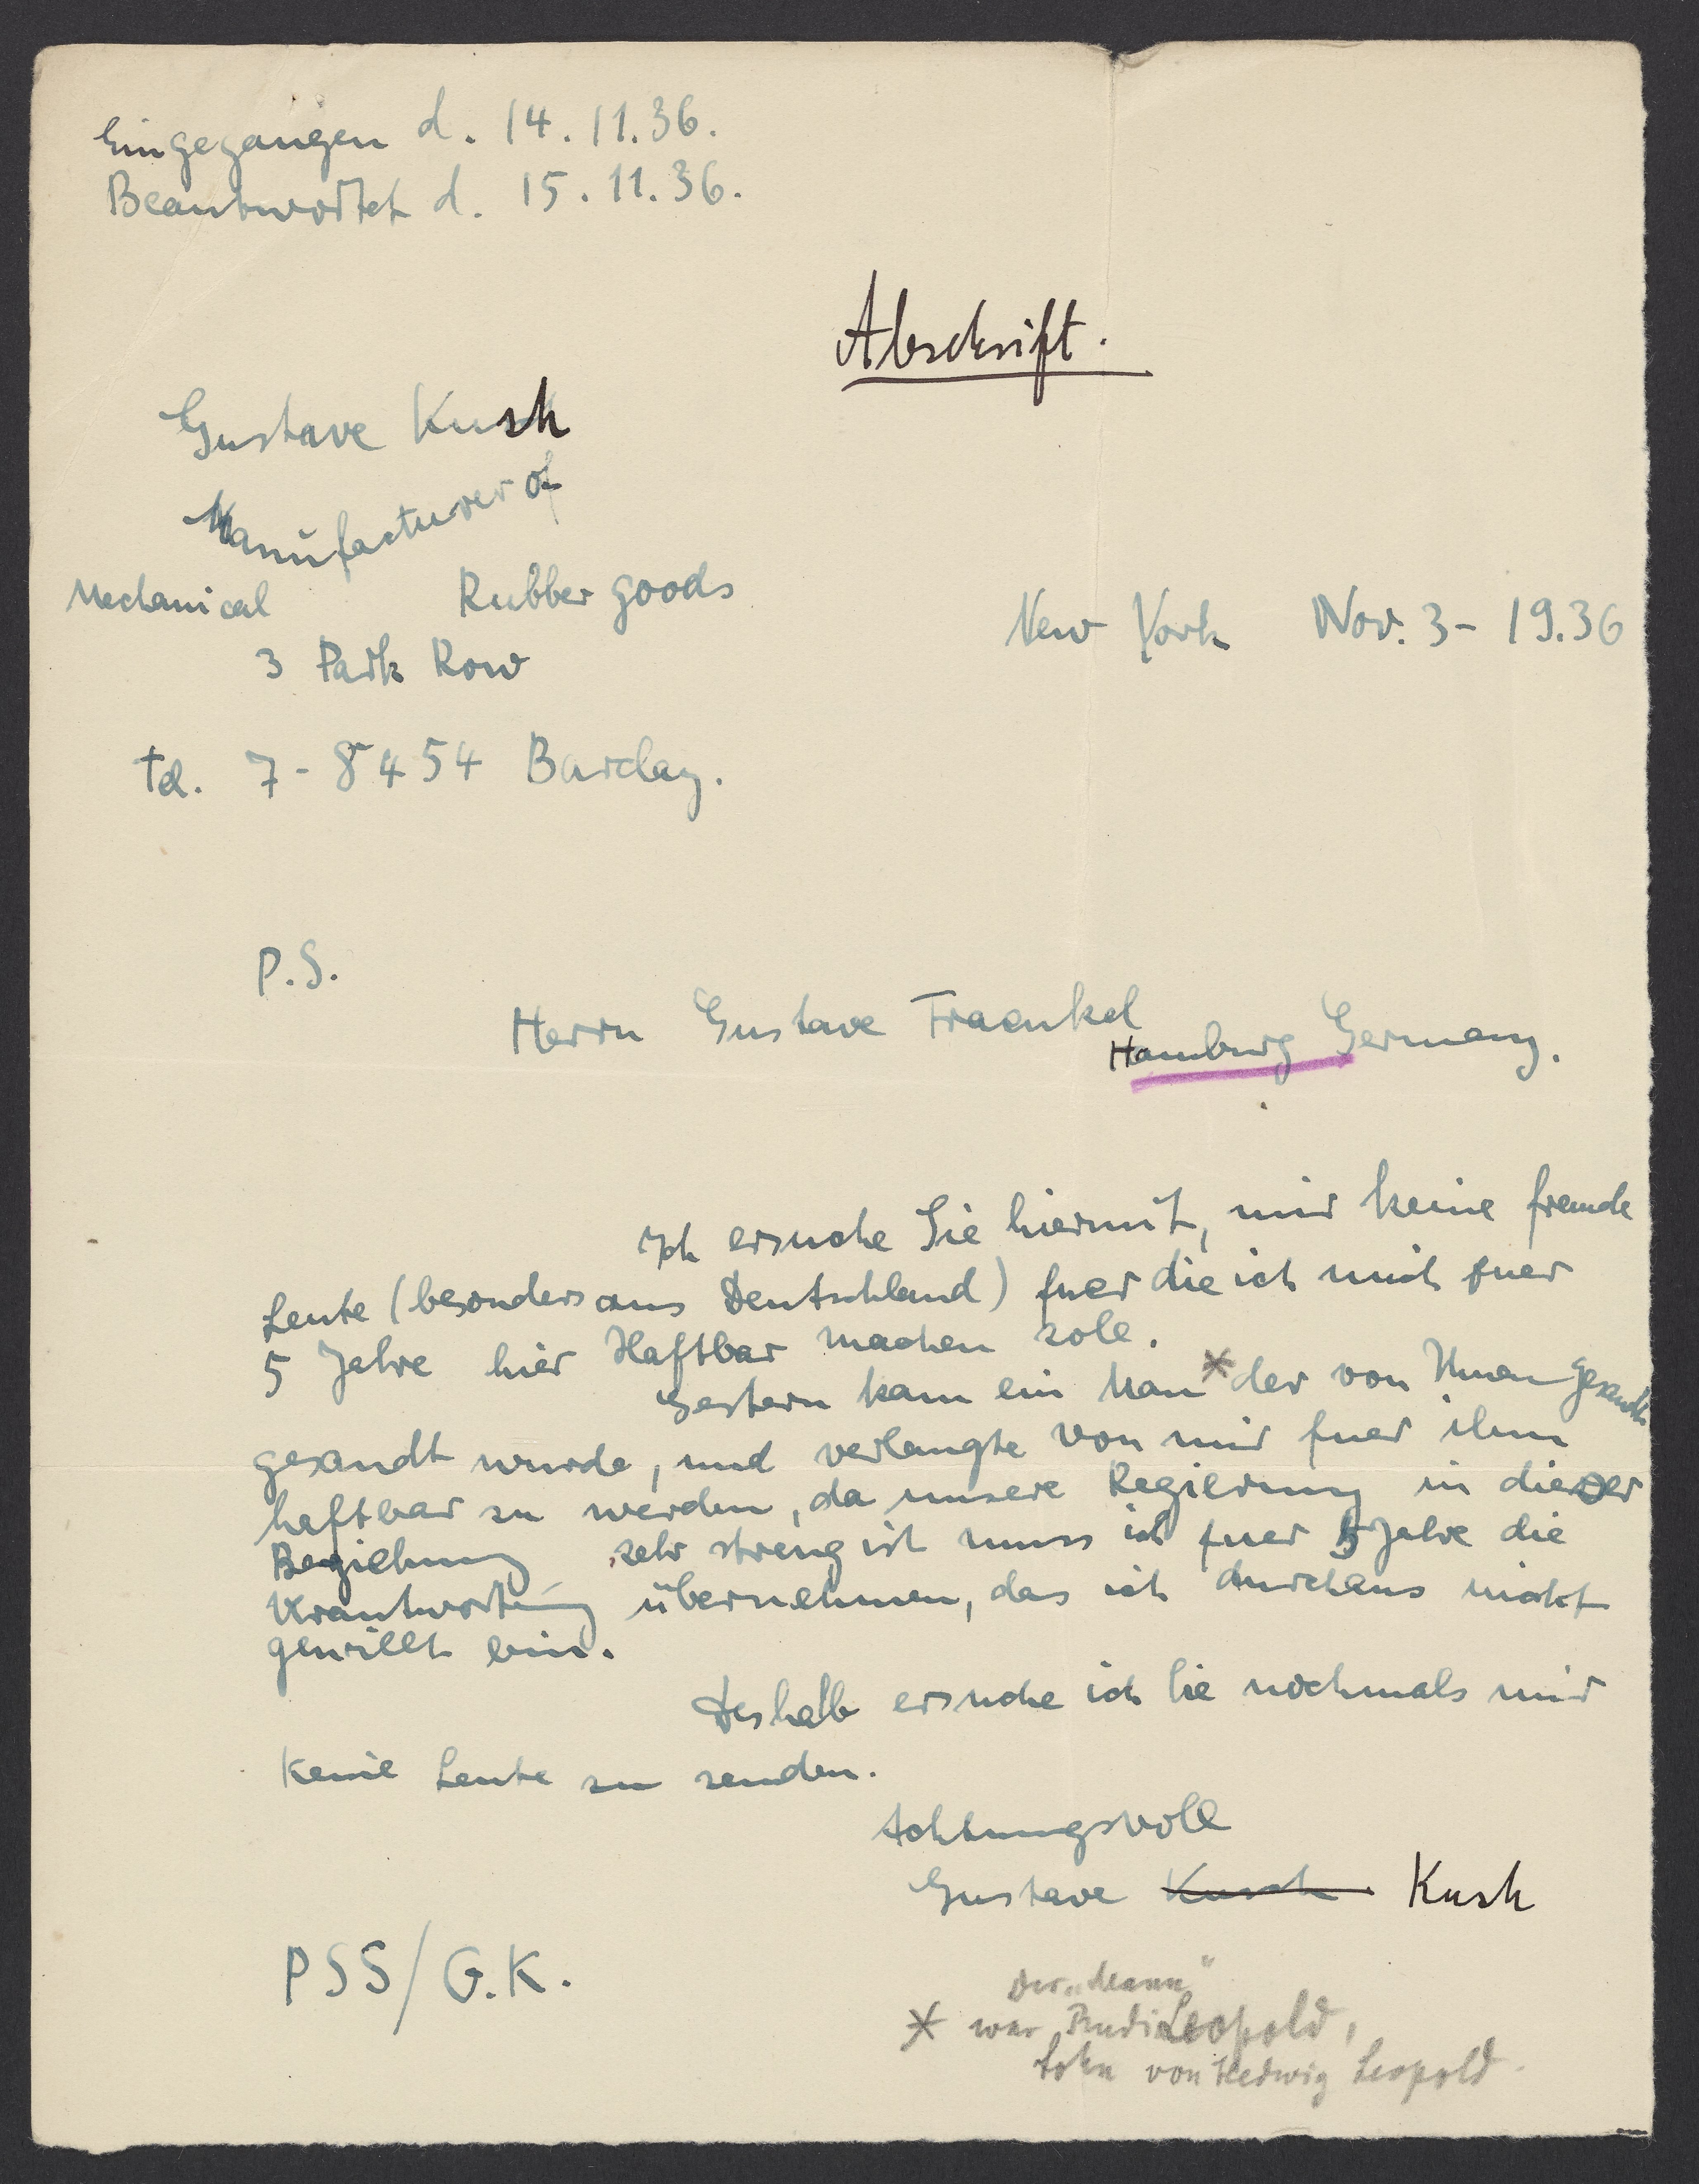 Eingegangen d. 14.11.36.
Beantwortet d. 15.11.36.
Abschrift.
Gustave Kush
Manufacturer of
Mechanical Rubber goods
3 Park Row
New York Nov. 3 - 19.36
tel. 7-8454 Barclay.
P.S.
Herrn Gustave Fraenkel
Hamburg Germany.
Ich ersuche Sie hiermit, mir keine fremde
Leute (besonders aus Deutschland) fuer die ich mich fuer
5 Jahre hier Haftbar machen sole.
Gestern kam ein Man * der von Ihnen gesandt
gesandt wurde, und verlangte von mir fuer ihm
haftbar zu werden, da unsere Regierung in dieser
Beziehung sehr streng ist muss ich fuer 5 Jahre die
Verantwortung übernehmen, das ich durchaus nicht
gewillt bin.
Deshalb ersuche ich Sie nochmals mir
Keine Leute zu senden.
Achtungsvoll
Gustave Kusch Kush
PSS/G.K.
Der „Mann"
* war Rudi Leopold,
Sohn von Hedwig Leopold.